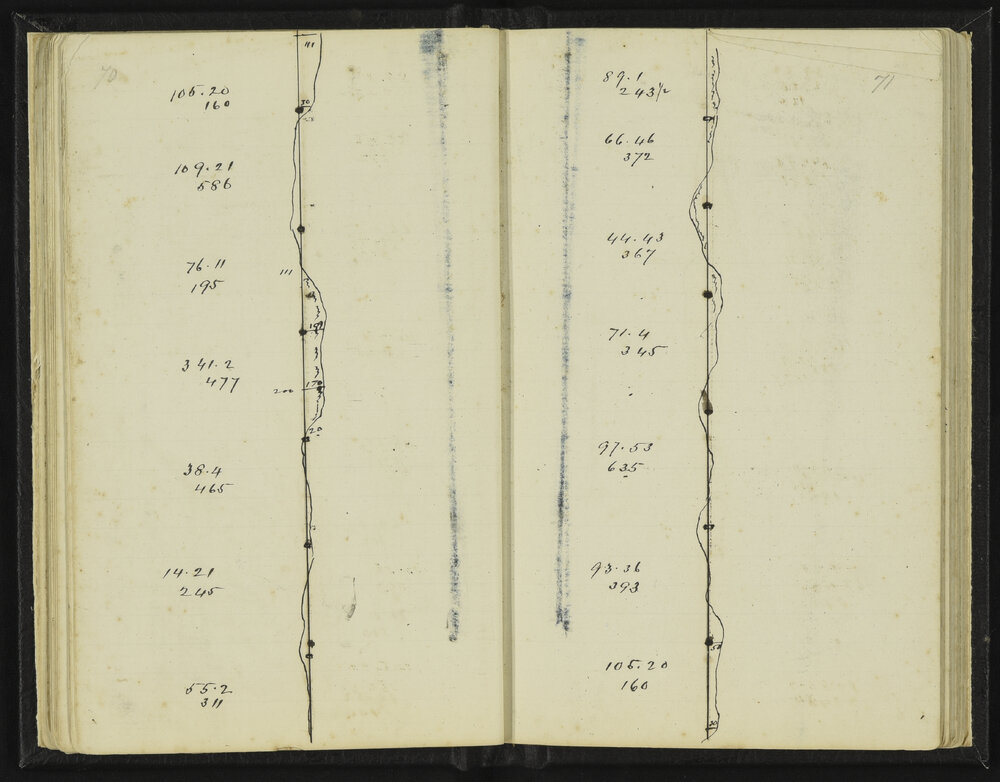 70
111
105.20
160
30
109.21
586
76.11
111
195
341.2
477
200
170
20
38.4
465
14.21
245
55.2
311
71
89.1
243½
66.46
372
44.43
367
71.4
345
97.53
635
93.36
393
50
105.20
160
30